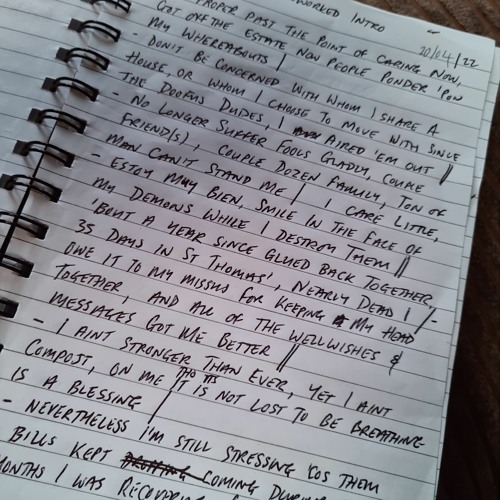 WORKED INTRO
20/04/22
PROPER PAST THE POINT OF CARING NOW,
GOT OFF THE ESTATE NOW PEOPLE PONDER 'PON
MY WHEREABOUTS /
- DON'T BE CONCERNED WITH WHOM I SHARE A
HOUSE, OR WHOM I CHOOSE TO MOVE WITH SINCE
THE DOOFUS DUDES, AIRED 'EM OUT //
- NO LONGER SUFFER FOOLS GLADLY, COUPLE
FRIEND(S), COUPLE DOZEN FAMILY, TON OF
MAN CAN'T STAND ME / I CARE LITTLE,
- ESTOY MUY BIEN, SMILE IN THE FACE OF
MY DEMONS WHILE I DESTROY THEM //
'BOUT A YEAR SINCE GLUED BACK TOGETHER,
35 DAYS IN ST THOMAS', NEARLY DEAD / -
OWE IT TO MY MISSUS FOR KEEPING MY HEAD
TOGETHER, AND ALL OF THE WELLWISHES &
MESSAGES GOT ME BETTER //
- I AINT STRONGER THAN EVER, YET I AINT
COMPOST, ON ME THO ITS IT IS NOT LOST TO BE BREATHING
IS A BLESSING /
- NEVERTHELESS I'M STILL STRESSING COS THEM
BILLS KEPT COMING DURING
MONTHS I WAS RECOVERING